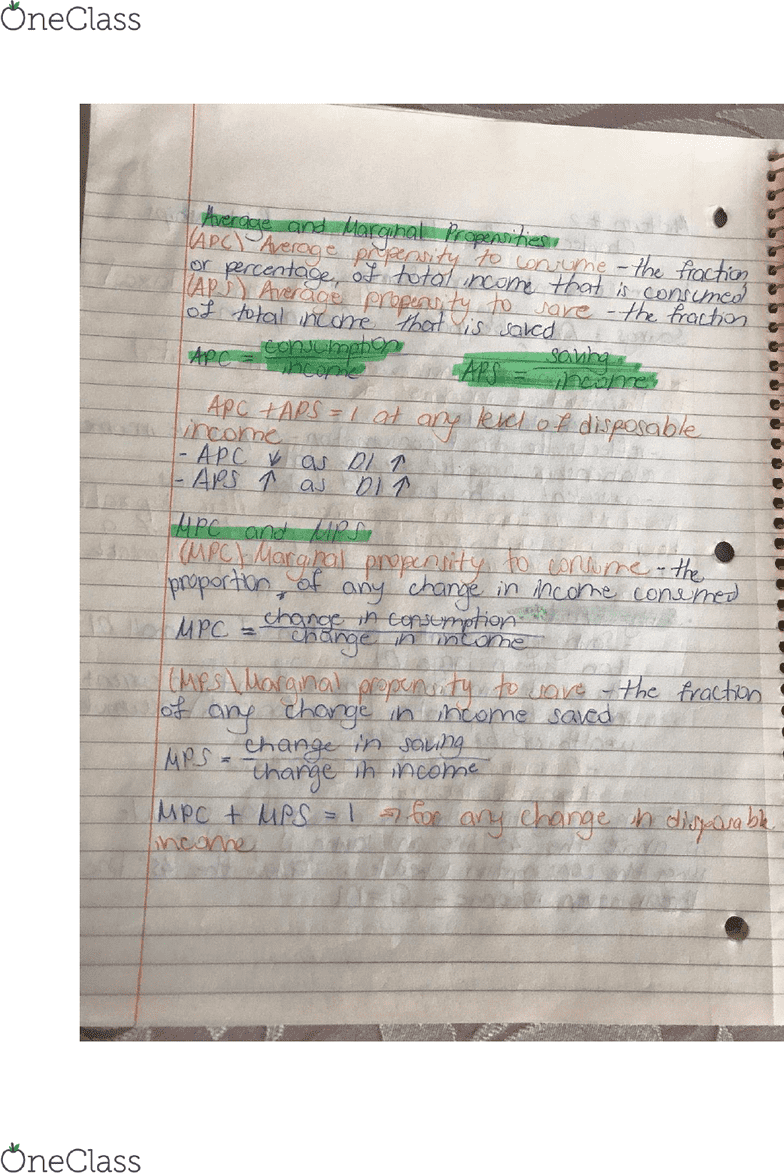 OneClass
Average and Marginal Propensities
(APC) Average propensity to consume - the fraction
or percentage, of total income that is consumed
(APS) Average propensity to save - the fraction
of total income that is saved
APC = consumption / income
APS = saving / income
APC + APS = 1 at any level of disposable
income
- APC ↓ as DI ↑
- APS ↑ as DI ↑
MPC and MPS
(MPC) Marginal propensity to consume - the
proportion, of any change in income consumed
MPC = change in consumption / change in income
(MPS) Marginal propensity to save - the fraction
of any change in income saved
MPS = change in saving / change in income
MPC + MPS = 1 → for any change in disposable
income
OneClass